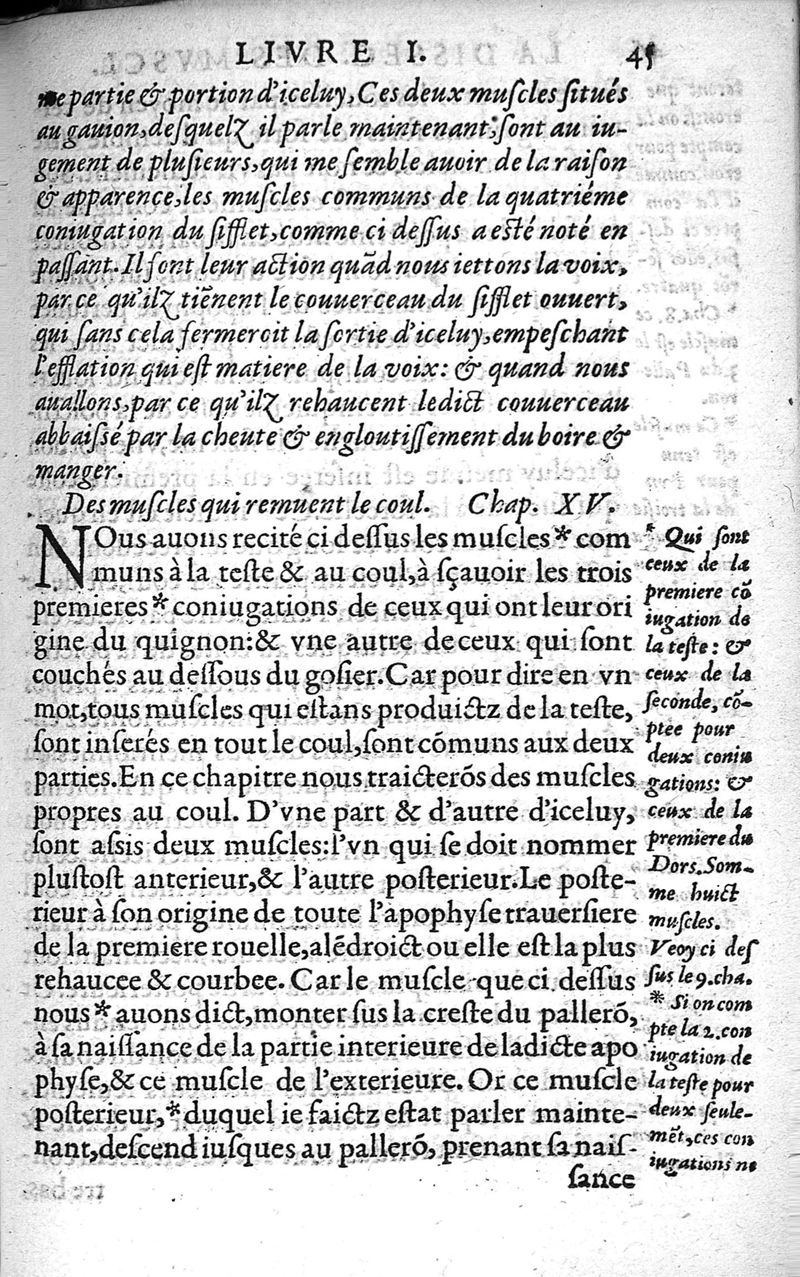 LIVRE I. 45
me partie & portion d'iceluy, Ces deux muſcles ſitués
au gauion, deſquelz il parle maintenant, ſont au iu-
gement de pluſieurs, qui me ſemble auoir de la raiſon
& apparence, les muſcles communs de la quatriéme
coniugation du ſifflet, comme ci deſſus a eſté noté en
paſſant. Il font leur action quād nous iettons la voix,
par ce qu'ilz tiēnent le couuerceau du ſifflet ouuert,
qui ſans cela fermeroit la ſortie d'iceluy, empeſchant
l'efflation qui eſt matiere de la voix: & quand nous
auallons, par ce qu'ilz rehaucent ledict couuerceau
abbaiſſé par la cheute & engloutiſſement du boire &
manger.
Des muſcles qui remuent le coul. Chap. XV.
NOus auons recité ci deſſus les muſcles * com
muns à la teſte & au coul, à ſçauoir les trois
premieres * coniugations de ceux qui ont leur ori
gine du quignon: & vne autre de ceux qui ſont
couchés au deſſous du goſier. Car pour dire en vn
mot, tous muſcles qui eſtans produictz de la teſte,
ſont inſerés en tout le coul, ſont cōmuns aux deux
parties. En ce chapitre nous traicterōs des muſcles
propres au coul. D'vne part & d'autre d'iceluy,
ſont aſsis deux muſcles: l'vn qui ſe doit nommer
pluſtoſt anterieur, & l'autre poſterieur. Le poſte-
rieur à ſon origine de toute l'apophyſe trauerſiere
de la premiere rouelle, alēdroict ou elle eſt la plus
rehaucee & courbee. Car le muſcle que ci deſſus
nous * auons dict, monter ſus la creſte du pallerō,
à ſa naiſſance de la partie interieure de ladicte apo
phyſe, & ce muſcle de l'exterieure. Or ce muſcle
poſterieur, * duquel ie faictz eſtat parler mainte-
nant, deſcend iuſques au pallerō, prenant ſa naiſ-
ſance
* Qui ſont
ceux de la
premiere cō
iugation de
la teſte: &
ceux de la
ſeconde, cō-
ptee pour
deux coniu
gations: &
ceux de la
premiere du
Dors. Som-
me huict
muſcles.
Veoy ci deſ
ſus le 9. cha.
* Si on com
pte la 2. con
iugation de
la teſte pour
deux ſeule-
mēt, ces con
iugations ne